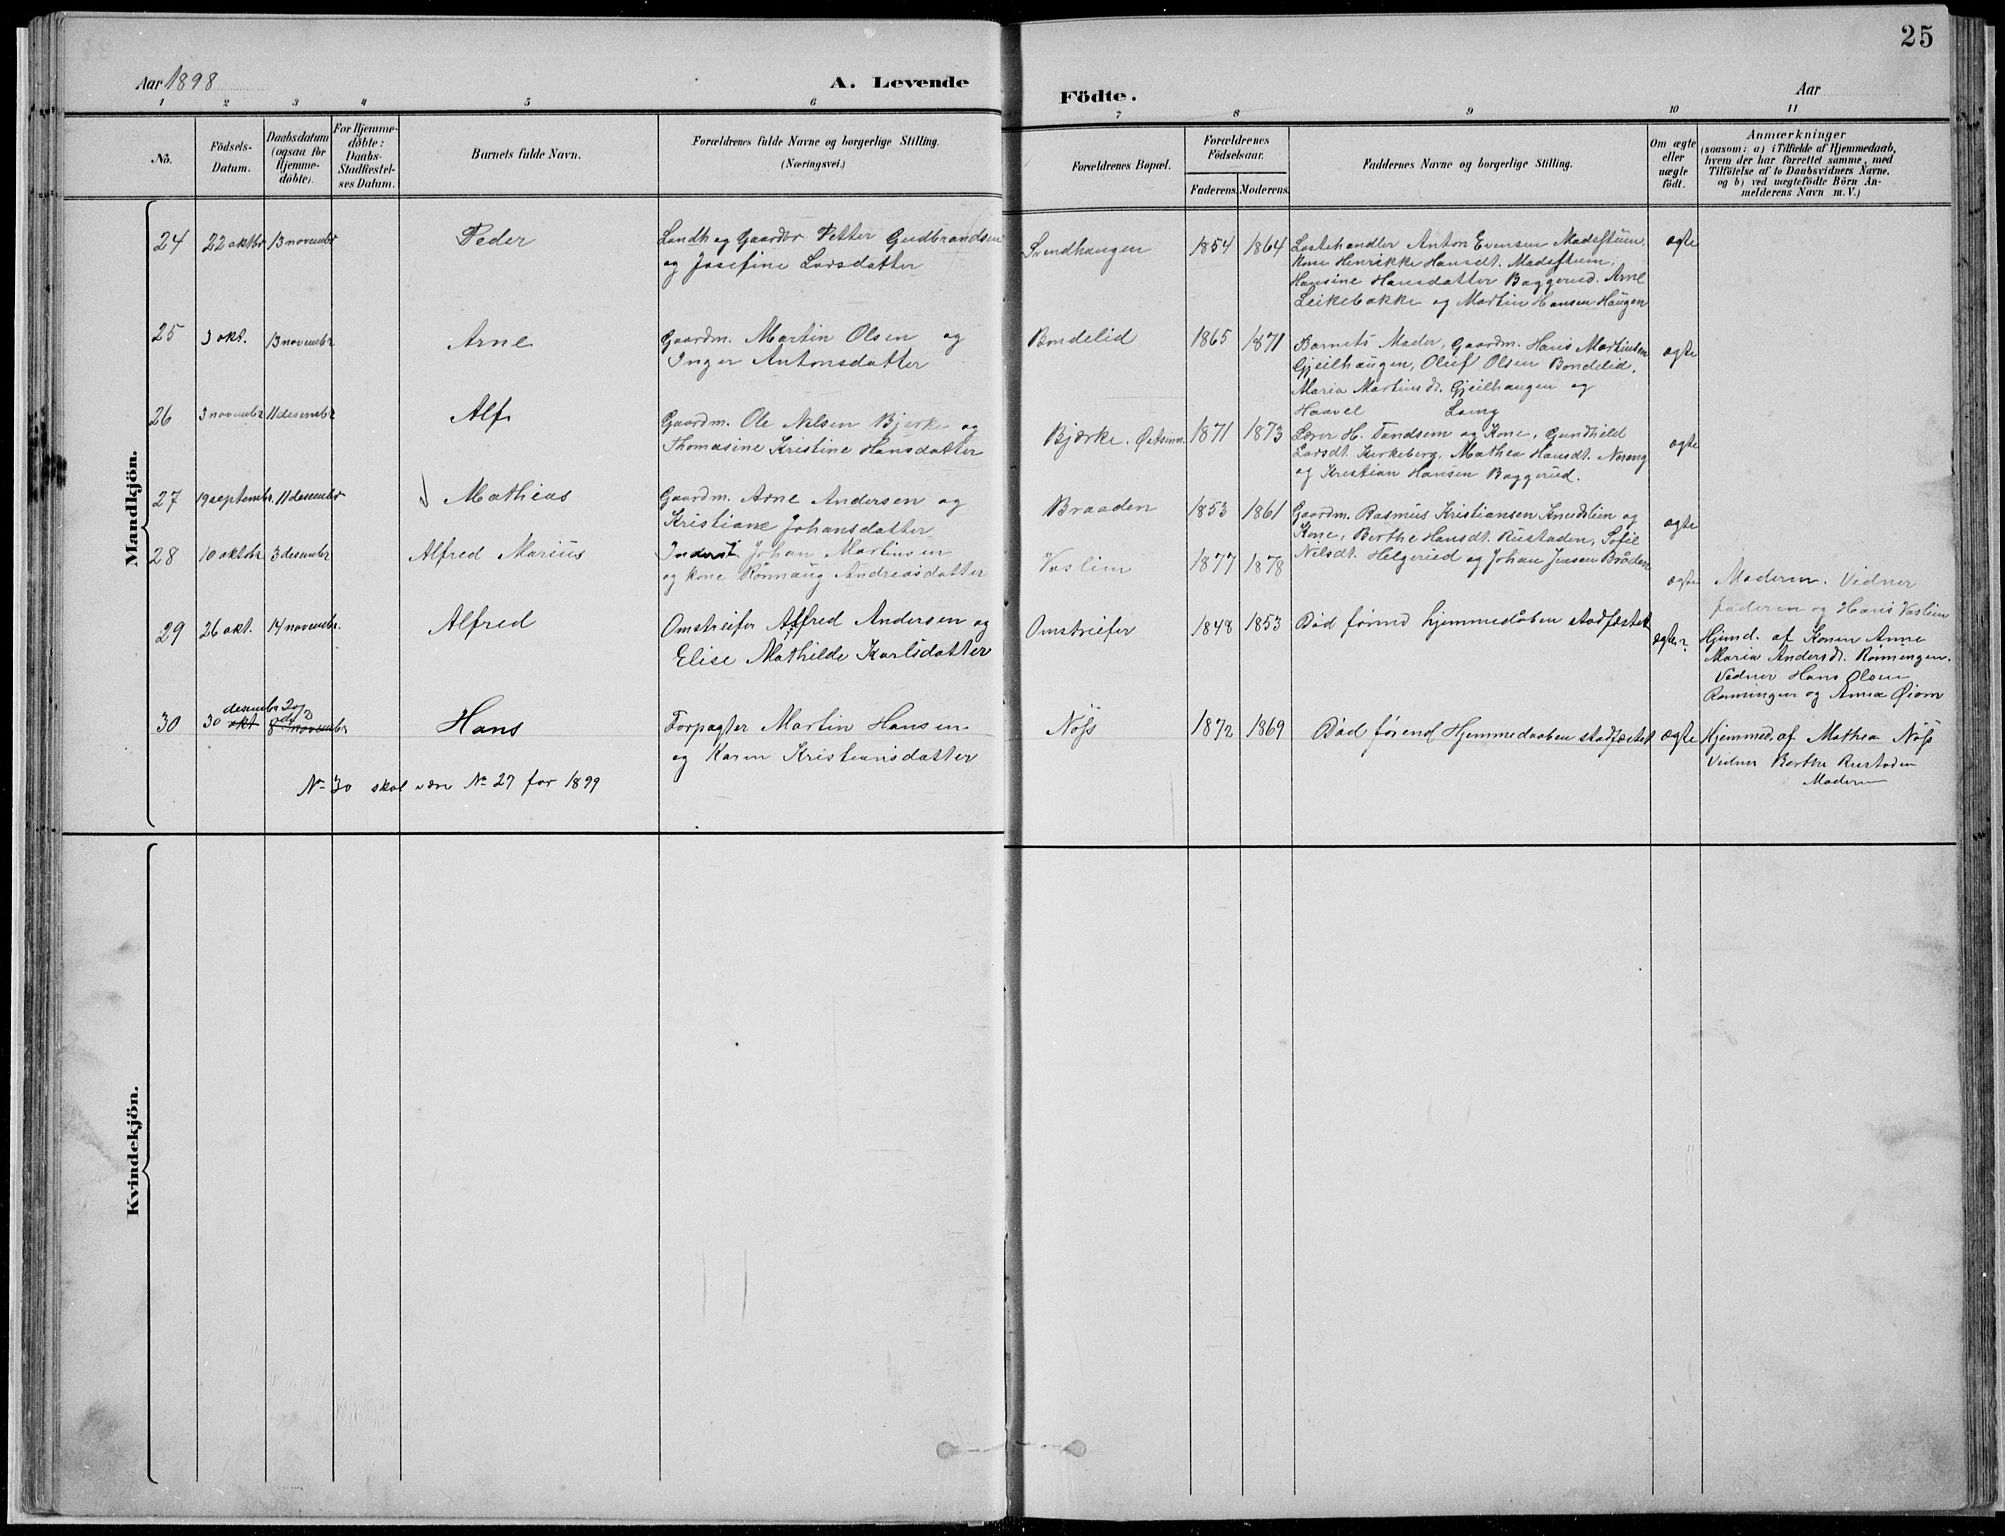 25
Aar 1898
A. Levende
Födte.
Aar
1 2 3 4 5 6 7 8 9 10 11
No.
Födsels-
Datum.
Daabsdatum
(ogsaa for
Hjemme-
döbte).
For Hjemme-
döbte:
Daabs-
Stadfæstel-
ses Datum.
Barnets fulde Navn.
Forældrenes fulde Navne og borgerlige Stilling.
(Næringsvei.)
Forældrenes Bopæl.
Forældrenes
Födselsaar.
Faderens. Moderens.
Faddernes Navne og borgerlige Stilling.
Om ægte
eller
uægte
födt.
Anmærkninger
(saasom: a) i Tilfælde af Hjemmedaab,
hvem der har forrettet samme, med
Tilföielse af to Daabsvidners Navne.
og b) ved uægtefödte Börn An-
melderens Navn m. V.)
Mandkjön.
24 22 oktbr 13 novembr Peder
Landh og Gaardbr Petter Gudbrandsen
og Josefine Larsdatter
Svendhaugen 1854 1864
Lastehandler Anton Evensen Madsstuen,
Kone Henrikke Hansdt. Madsstuen,
Hansine Hansdatter Baggerud. Arne
Leikebakke og Martin Hansen Haugen
ægte
25 3 okt. 13 novembr Arne
Gaardm. Martin Olsen og
Inger Antonsdatter
Bondelid 1865 1871
Barnets Moder, Gaardm. Hans Martinsen
Gjeilhaugen, Oluf Olsen Bondelid,
Maria Martinsdt. Gjeilhaugen og
Haavel
ægte
26 3 novembr 11 desembr Alf
Gaardm. Ole Nilsen Bjerke og
Thomasine Kristine Hansdatter
Bjærke. 1871 1873
Lærer H. Tandsem og Kone, Gundhild
Larsdt. Kirkeberg, Mathea Hansdt. Noreng
og Kristian Hansen Baggerud.
ægte
27 19 septembr. 11 desembr Mathias
Gaardm. Arne Andersen og
Kristiane Johansdatter
Braaden 1853 1861
Gaardm. Rasmus Kristiansen Knudslien og
Kone, Berthe Hansdt. Rustaden, Sofie
Nilsdt. Helgerud og Johan Jensen Bråden
ægte
28 10 oktbr 3 desembr Alfred Marius
Inderst Johan Martinsen
og kone Rønnaug Andreasdatter
Vaslien 1877 1878
ægte
Moderen. Vidner
faderen og Hans Vaslien
29 26 okt. 14 novembr. Alfred
Omstreifer Alfred Andersen og
Elise Mathilde Karlsdatter
Omstreifer 1848 1853
Død førend hjemmedåben stadfæstet
ægte?
Hjemd. af Konen Anne
Maria Andersdt. Rønningen.
Vidner Hans Olsen
Rønningen og Anna Øiom
desembr
30 30 okt 8de novembr Hans
Forpagter Martin Hansen
og Karen Kristiansdatter
Nöss 1872 1869
Død førend Hjemmedaaben stadfæstet
ægte
Hjemmed. af Mathea Nöss
Vidner Berthe Rustaden
Moderen
No 30 skal være No 27 for 1899
Kvindekjön.